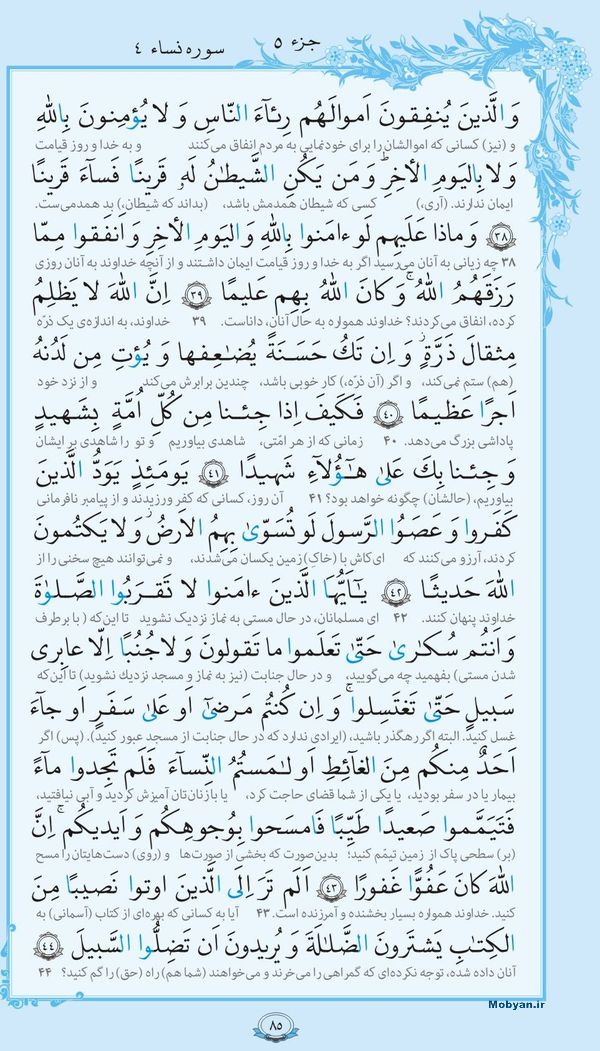 جزء ۵
سوره نساء ۴
وَ الَّذینَ یُنفِقونَ اَموالَهُم رِئـاءَ النّاسِ وَ لا یُؤمِنونَ بِاللهِ
و (نیز) کسانی که اموالشان را برای خودنمایی به مردم انفاق می‌کنند و به خدا و روز قیامت
وَ لا بِالیَومِ الأخِرِ وَ مَن یَکُنِ الشَّیطٰنُ لَهُ قَرینًا فَساءَ قَرینًا
ایمان ندارند. (آری،) کسی که شیطان همدمش باشد، (بداند که شیطان،) بد همدمی‌ست.
﴿۳۸﴾ وَ ماذا عَلَیهِم لَو ءامَنوا بِاللهِ وَ الیَومِ الأخِرِ وَ اَنفَقوا مِمّا
۳۸ چه زیانی به آنان می‌رسید اگر به خدا و روز قیامت ایمان داشتند و از آنچه خداوند به آنان روزی
رَزَقَهُمُ اللهُ ۚ وَ کانَ اللهُ بِهِم عَلیمًا ﴿۳۹﴾ اِنَّ اللهَ لا یَظلِمُ
کرده، انفاق می‌کردند؟ خداوند همواره به حال آنان، داناست. ۳۹ خداوند، به اندازه‌ی یک ذرّه
مِثقالَ ذَرَّةٍ ۖ وَ اِن تَکُ حَسَنَةً یُضٰعِفها وَ یُؤتِ مِن لَدُنهُ
(هم) ستم نمی‌کند، و اگر (آن ذرّه،) کار خوبی باشد، چندین برابرش می‌کند و از نزد خود
اَجرًا عَظیمًا ﴿۴۰﴾ فَکَیفَ اِذا جِئنا مِن کُلِّ اُمَّةٍ بِشَهیدٍ
پاداشی بزرگ می‌دهد. ۴۰ زمانی که از هر امّتی، شاهدی بیاوریم و تو را شاهدی بر ایشان
وَ جِئنا بِکَ عَلیٰ هٰؤُلاءِ شَهیدًا ﴿۴۱﴾ یَومَئِذٍ یَوَدُّ الَّذینَ
بیاوریم، (حالشان) چگونه خواهد بود؟ ۴۱ آن روز، کسانی که کفر ورزیدند و از پیامبر نافرمانی
کَفَروا وَ عَصَوُا الرَّسولَ لَو تُسَوّیٰ بِهِمُ الاَرضُ وَ لا یَکتُمونَ
کردند، آرزو می‌کنند که ای‌کاش با (خاک) زمین یکسان می‌شدند، و نمی‌توانند هیچ سخنی را از
اللهَ حَدیثًا ﴿۴۲﴾ یٰاَیُّهَا الَّذینَ ءامَنوا لا تَقرَبُوا الصَّلوٰةَ
خداوند پنهان کنند. ۴۲ ای مسلمانان، در حال مستی به نماز نزدیک نشوید تا این‌که ( با برطرف
وَ اَنتُم سُکٰریٰ حَتّیٰ تَعلَموا ما تَقولونَ وَ لا جُنُبًا اِلّا عابِری
شدن مستی) بفهمید چه می‌گویید، و در حال جنابت (نیز به نماز و مسجد نزدیک نشوید) تا این‌که
سَبیلٍ حَتّیٰ تَغتَسِلوا ۚ وَ اِن کُنتُم مَرضیٰ اَو عَلیٰ سَفَرٍ اَو جاءَ
غسل کنید. البته اگر رهگذر باشید، (ایرادی ندارد که در حال جنابت از مسجد عبور کنید). (پس) اگر
اَحَدٌ مِنکُم مِنَ الغائِطِ اَو لٰمَستُمُ النِّساءَ فَلَم تَجِدوا ماءً
بیمار یا در سفر بودید، یا یکی از شما قضای حاجت کرد، یا با زنان‌تان آمیزش کردید و آبی نیافتید،
فَتَیَمَّموا صَعیدًا طَیِّبًا فَامسَحوا بِوُجوهِکُم وَ اَیدیکُم ۗ اِنَّ
(بر) سطحی پاک از زمین تیمّم کنید؛ بدین‌صورت که بخشی از صورت‌ها و (روی) دست‌هایتان را مسح
اللهَ کانَ عَفُوًّا غَفورًا ﴿۴۳﴾ اَلَم تَرَ اِلَی الَّذینَ اوتوا نَصیبًا مِنَ
کنید. خداوند همواره بسیار بخشنده و آمرزنده است. ۴۳ آیا به کسانی که بهره‌ای از کتاب (آسمانی) به
الکِتٰبِ یَشتَرونَ الضَّلٰلَةَ وَ یُریدونَ اَن تَضِلُّوا السَّبیلَ ﴿۴۴﴾
آنان داده شده، توجه نکرده‌ای که گمراهی را می‌خرند و می‌خواهند (شما هم) راه (حق) را گم کنید؟ ۴۴
Mobyan.ir
۸۵